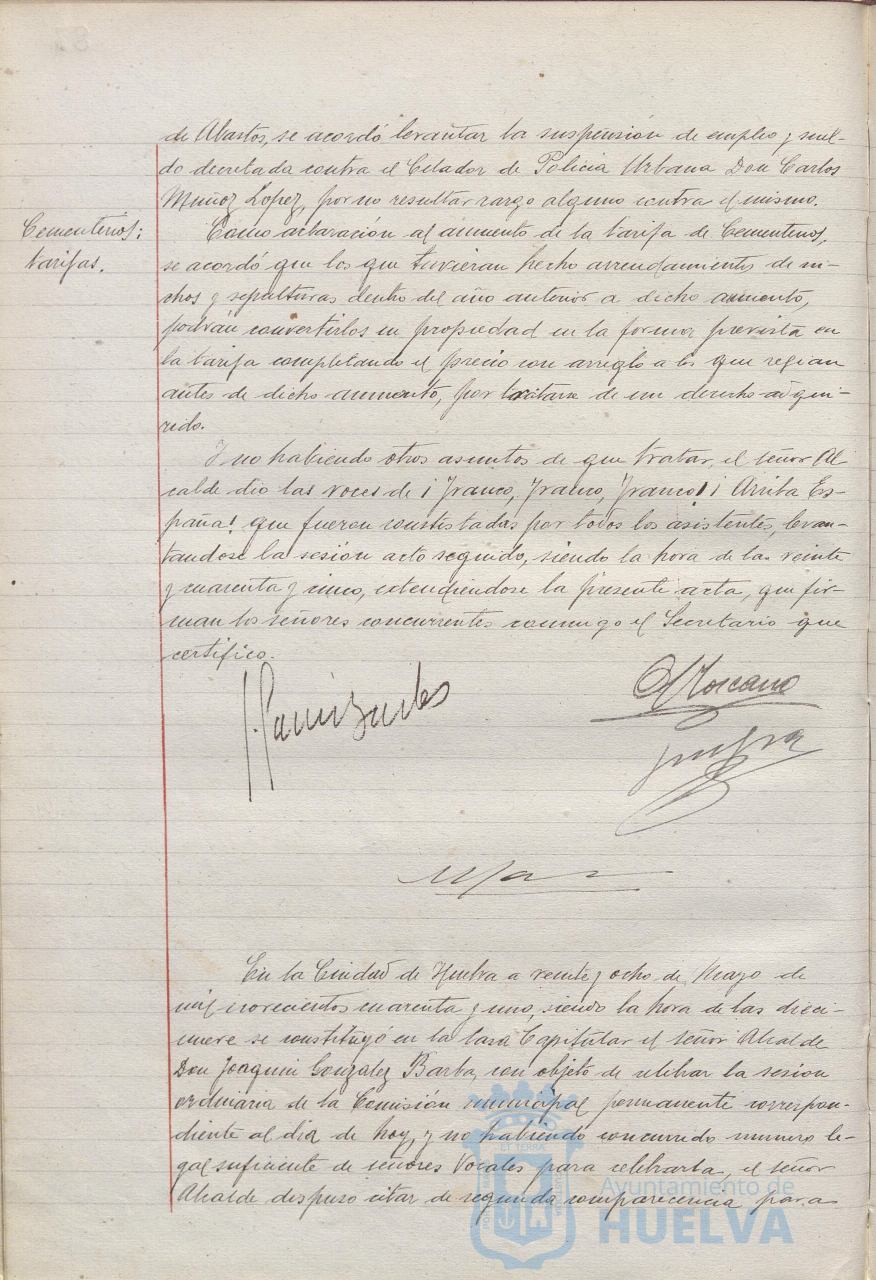 de Abastos, se acordó levantar la suspensión de empleo y suel-
do decretada contra el Celador de Policia Urbana Don Carlos
Muñoz Lopez, por no resultar cargo alguno contra el mismo.
Cementerios:
tarifas.
Como aclaración al aumento de la tarifa de Cementerios,
se acordó que los que tuvieran hecho arrendamiento de ni-
chos y sepulturas dentro del año anterior a dicho aumento,
podrán convertirlos en propiedad en la forma prevista en
la tarifa completando el precio con arreglo a los que regian
antes de dicho aumento, por tratarse de un derecho adqui-
rido.
Y no habiendo otros asuntos de que tratar, el señor Al
calde dio las voces de ¡Franco, Franco, Franco! ¡Arriba Es-
paña! que fueron constestadas por todos los asistentes, levan-
tandose la sesión acto seguido, siendo la hora de las veinte
y cuarenta y cinco, extendiendose la presente acta, que fir-
man los señores concurrentes conmigo el Secretario que
certifico.
En la Ciudad de Huelva a veinte y ocho de Mayo de
mil novecientos cuarenta y uno, siendo la hora de las dieci-
nueve se constituyó en la Casa Capitular el señor Alcalde
Don Joaquin González Barba, con objeto de celebrar la sesion
ordinaria de la Comisión municipal permanente correspon-
diente al dia de hoy, y no habiendo concurrido numero le-
gal suficiente de señores Vocales para celebrarla, el señor
Alcalde dispuso citar de segunda comparecencia para
Ayuntamiento de
HUELVA